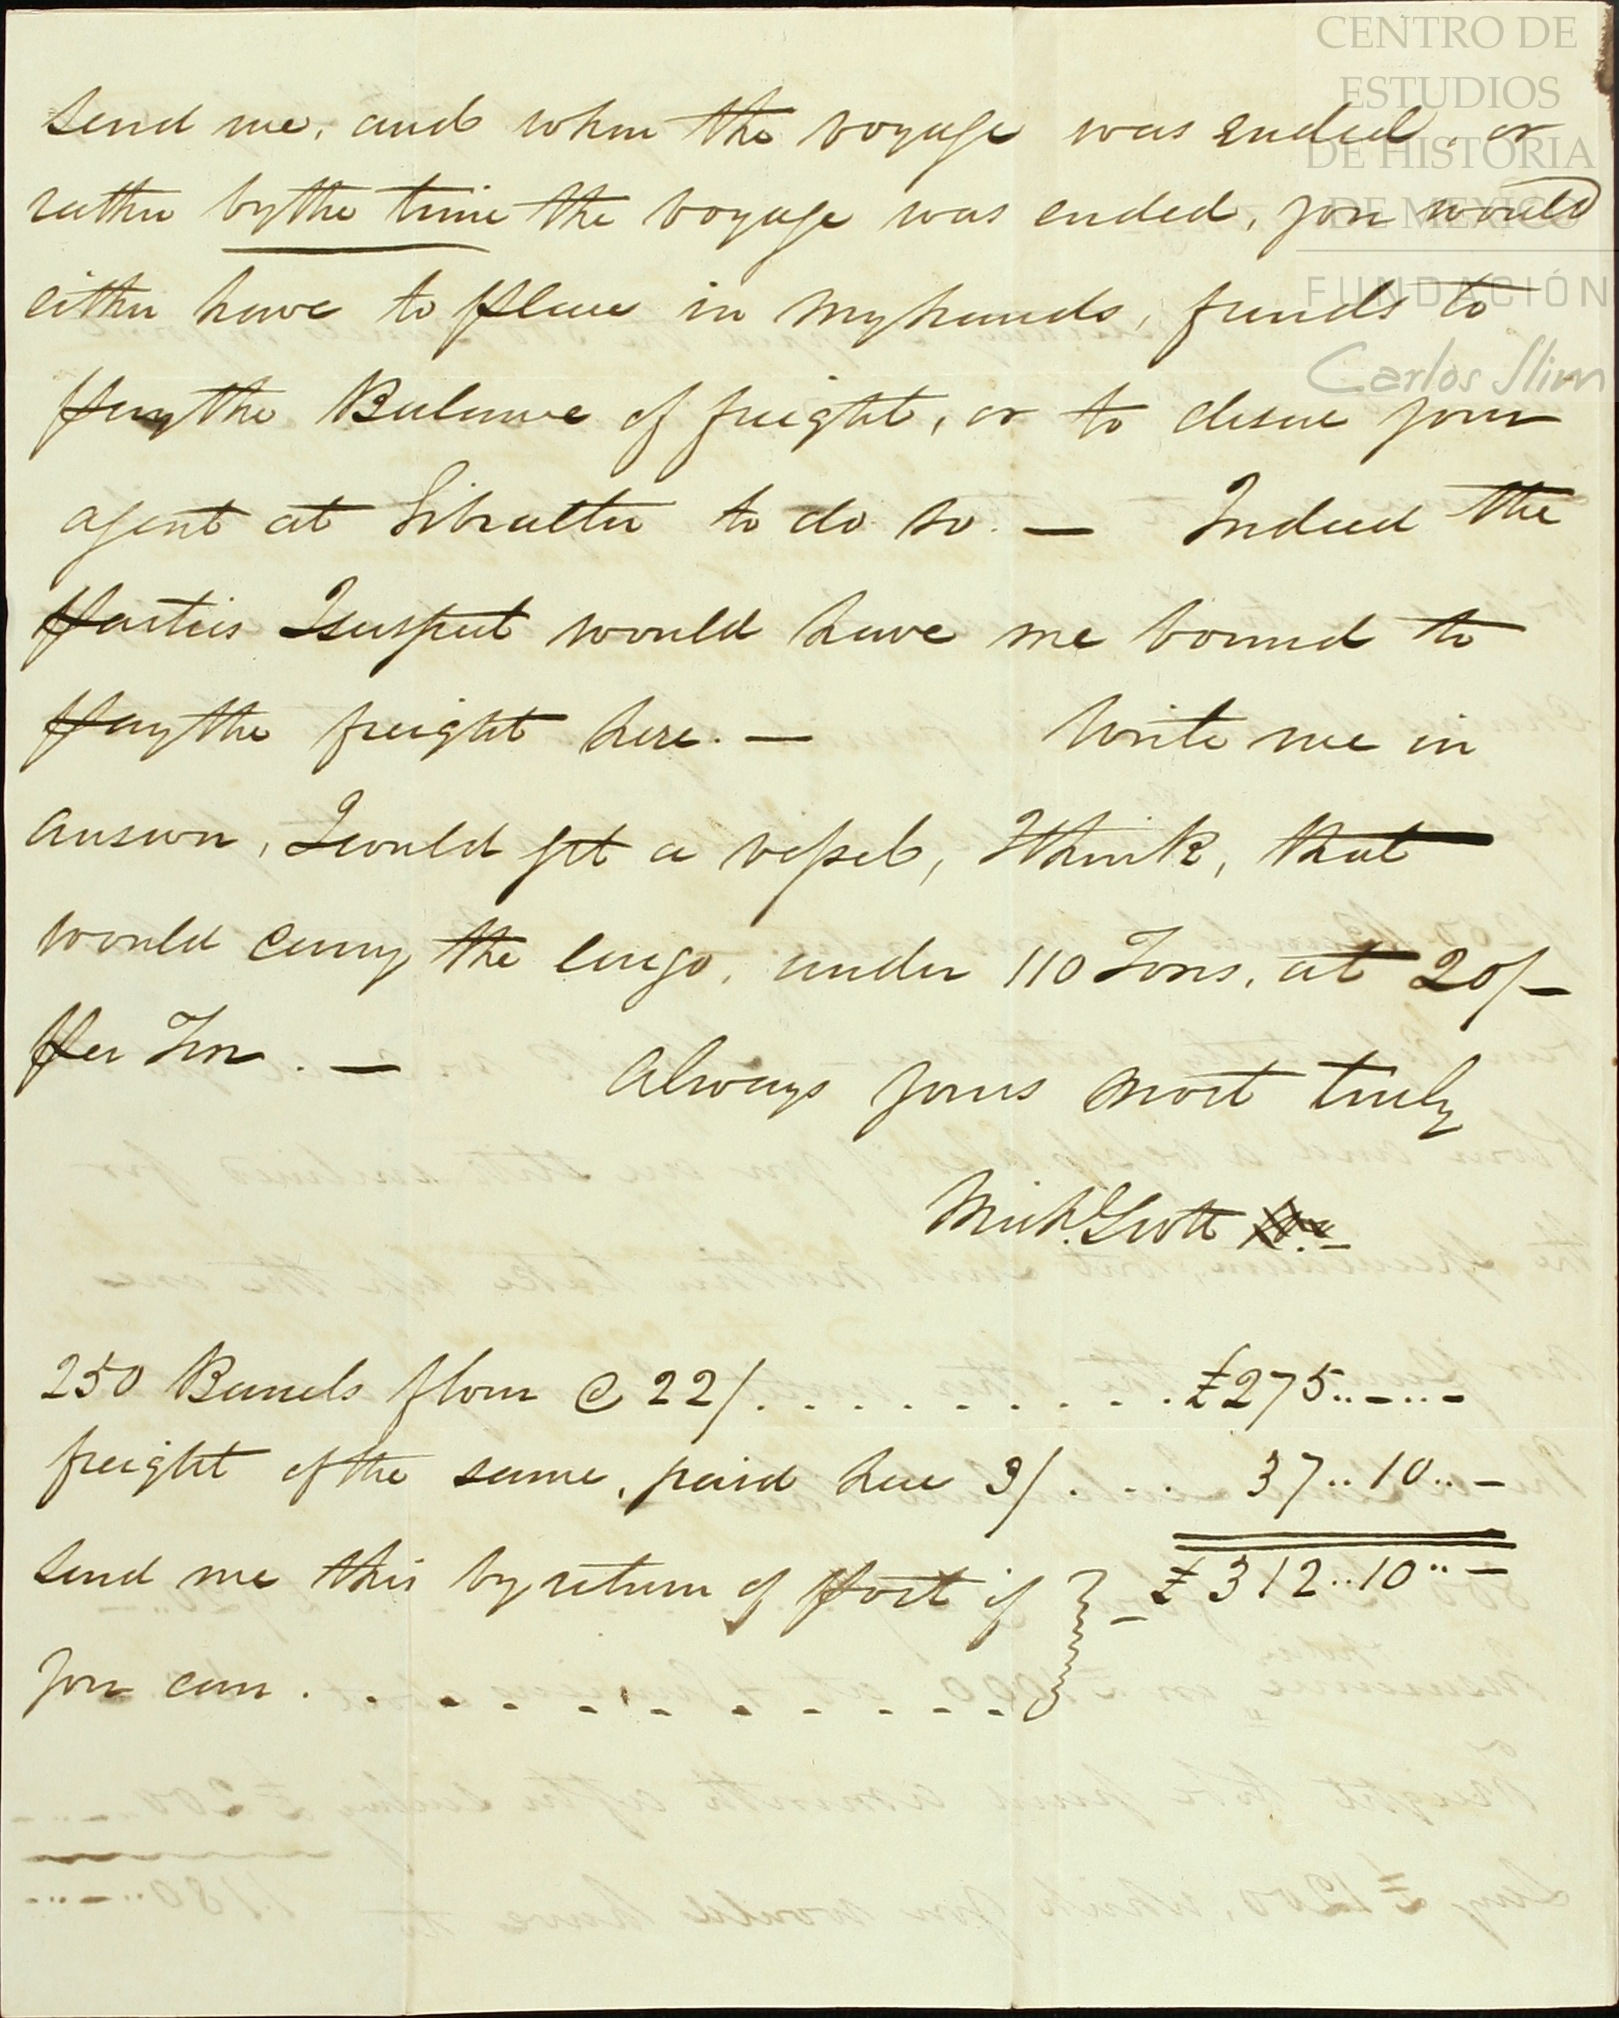 CENTRO DE
ESTUDIOS
DE HISTORIA
DE MEXICO
FUNDACIÓN
Carlos Slim
send me, and when the voyage was ended, or
rather by the time the voyage was ended, you would
either have to place in my hands, funds to
pay the Balance of freight, or to desire your
agent at Gibralter to do so. — Indeed the
parties I suspect would have me bound to
pay the freight here. — Write me in
answer, I could get a vessel, I think, that
would carry the cargo, under 110 Tons, at 20/-
per Ton. —
Always yours most truly
Mich. Scott
250 Barrels flour @ 22/ . . . . . . . . . . £275..-..-
freight of the same, paid here 3/ . . . 37..10..-
send me this by return of post if } - £312..10..-
you can . . . . . . . . . . . .